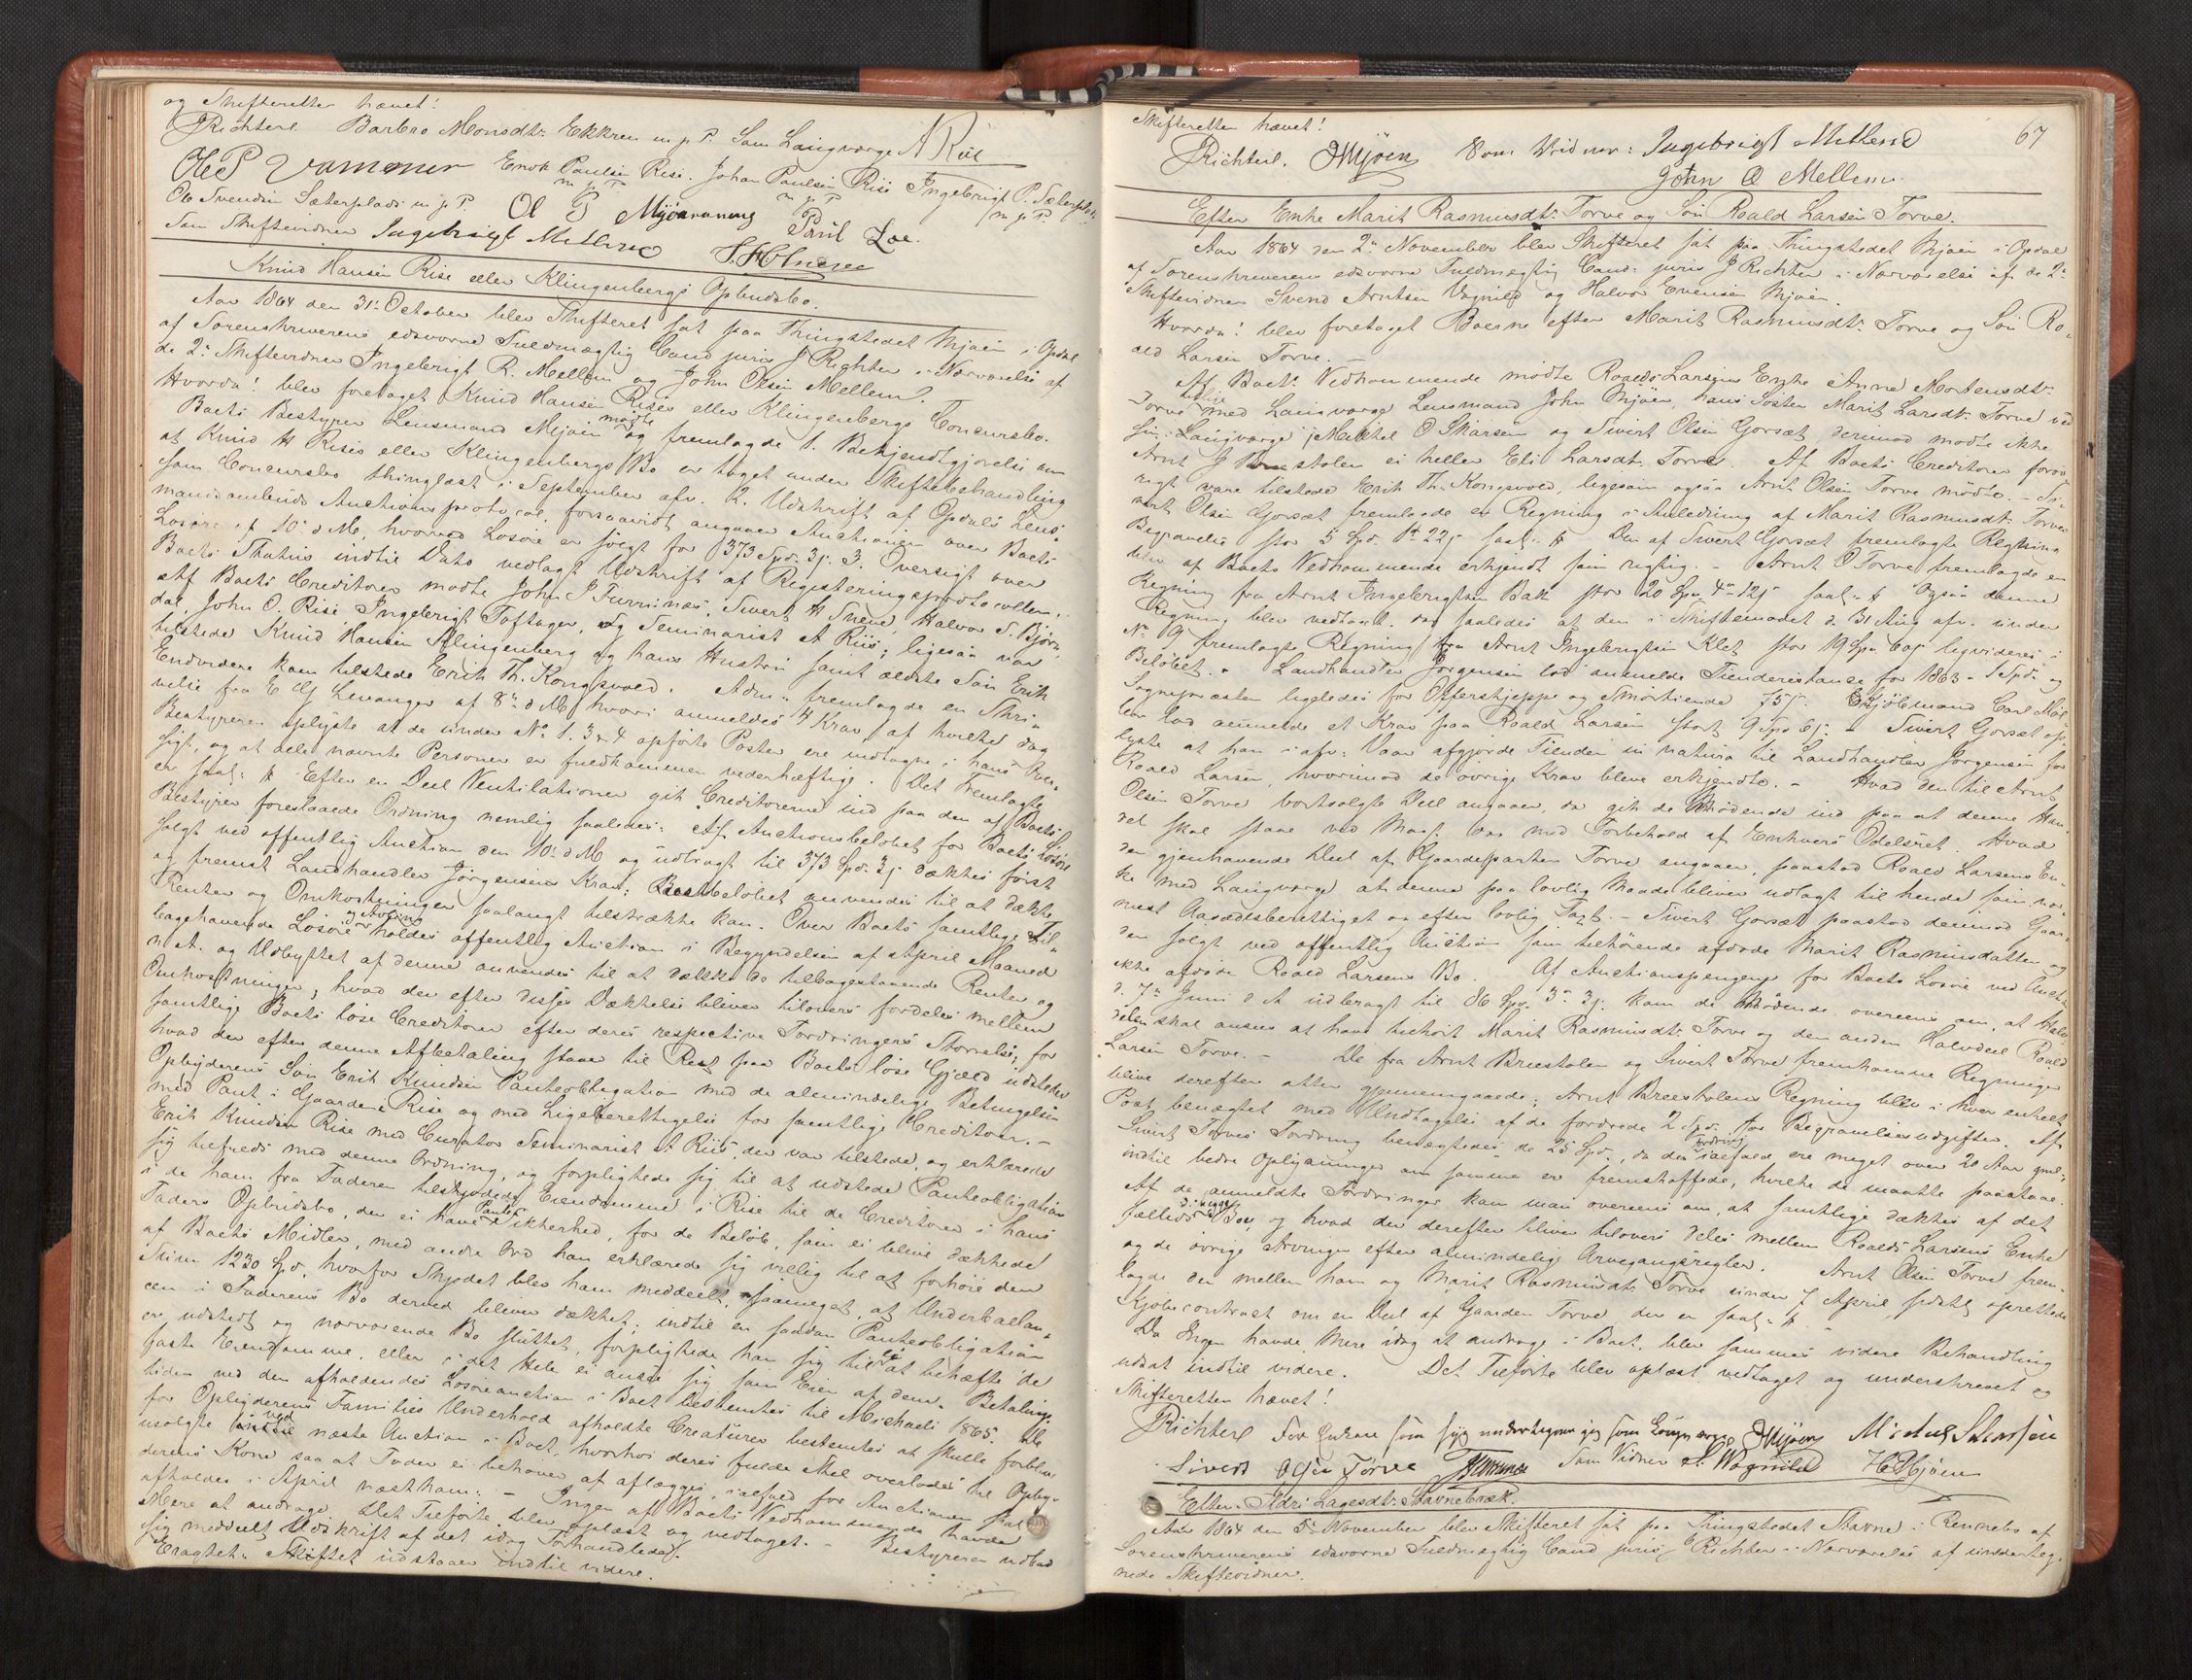 og Skifteretten hævet!
JRichter. Barbro Monsdtr. Ekkren m. p. P. Som Laugværge A Riis
Ole P Vammer Enok Paulsen Risi. Johan Paulsen Risi Ingebrigt P. Sæterplads
m. p. P. m. p. P m. p. P.
Ole Svendsen Sæterplads m. p. P. Ol P Mjöaunaung Paul Loe.
Som Skiftevidner Ingebrigt Mellem
Knud Hansen Rise eller Klingenbergs Opbudsbo.
Aar 1864 den 31te October blev Skifteret sat paa Thingstedet Mjøen i Opdal
af Sorenskriverens edsvorne Fuldmægtig Cand juris J Richter i Nærværelse af
de 2de Skiftevidner Ingebrigt R. Mellem og John Olsen Mellem.
Hvorda! blev foretaget Knud Hansen Rises eller Klingenbergs Concursbo.
Boets Bestyrer Lensmand Mjøen mødte og fremlagde 1. Bekjendtgjørelse om
at Knud H Rises eller Klingenbergs Bo er taget under Skiftebehandling
som Concursbo thinglæst i September afv. 2. Udskrift af Opdals Lens-
mandsombuds Auctionsprotocol forsaavidt angaaer Auctionen over Boets
Løsøre af 10de d M, hvorved Løsøre er solgt for 373 Spd. 3 s. 3. Oversigt over
Boets Status indtil Dato vedlagt Udskrift af Registeringsprotocollen.
Af Boets Creditorer mødte John J Furunæs, Sivert H Sneve, Halvor S. Bjørn-
dal, John O. Risi, Ingebrigt Toftager, og Seminarist A Riis; ligesaa var
tilstede Knud Hansen Klingenberg og hans Hustru samt ældste Søn Erik
Endvidere kom tilstede Erik Th. Kongsvold. Adm. fremlagde en Skri-
velse fra E G Levanger af 8de d M hvori anmeldes 4 Krav, af hvilke dog
Bestyreren oplyste at de under No 1. 3 & 4 opførte Poster ere indtagne i hans Over-
sigt, og at alle nævnte Personer er fuldkommen vederhæftige. Det Fremlagte
er saal. Efter en Deel Ventilationer gik Creditorerne ind paa den af Boets
Bestyrer foreslaaede Ordning nemlig saaledes: Af Auctionsbeløbet for Boets Løsøre
solgt ved offentlig Auction den 10de d M og udbragt til 373 Spd. 3 s dækkes først
og fremst Landhandler Jørgensens Krav; Restbeløbet anvendes til at dække
Renter og Omkostninger saalangt tilstrække kan. Over Boets samtlige til-
bagehavende Løsøre og Avling holdes offentlig Auction i Begyndelsen af April Maaned
n. A. og Udbyttet af denne anvendes til at dække de tilbagestaaende Renter og
Omkostninger; hvad der efter disses Dækkelse bliver tilovers fordeles mellem
samtlige Boets løse Creditorer efter deres respective Fordringers Størrelse; for
hvad der efter denne Afbetaling staar til Rest paa Boets løse Gjæld udsteder
Opbyderens Søn Erik Knudsen Panteobligation med de almindelige Betingelser
med Pant i Gaarden Rise og med Ligeberettigelse for samtlige Creditorer. –
Erik Knudsen Rise med Curator Seminarist A Riis, der var tilstede, og erklærede
sig tilfreds med denne Ordning, og forpligtede sig til at udstede Panteobligation
i de ham fra Faderen tilskjødede Eiendomme i Rise til de Creditorer i hans
Faders Opbudsbo, der ei have Pante Sikkerhed, for de Beløb, som ei bleve dækkede
af Boets Midler, med andre Ord han erklærede sig villig til at forhøie den
Sum 1230 Spd, hvorfor Skjødet blev ham meddeelt, saameget, at Underballan-
cen i Faderens Bo derved bliver dækket; indtil en saadan Panteobligation
er udstedt og nærværende Bo sluttet, forpligtede han sig til ei at behæfte de
faste Eiendomme, eller i det Hele ei ansee sig som Eier af dem. Betalings-
tiden ved den afholdendes Løsøreauction i Boet bestemtes til Michaeli 1865. De
for Opbyderens Families Underhold afholdte Creaturer bestemtes at skulle forblive
usolgte ved næste Auction i Boet, hvorhos deres fulde Mel overlodes til Opby-
derens Kone saa at Foder ei behøver at aflægges, ialfald for Auctionen skal
afholdes i April næstkom. – Ingen af Boets Vedkommende havde
Mere at andrage. Det Tilførte blev oplæst og vedtaget. – Bestyreren udbad
sig meddeelt Udskrift af det idag Forhandlede.
Eragtet. Skiftet udstaaer indtil videre.
67
Skifteretten hævet!
JRichter. JMjøen Som Vidner: Ingebrigt Mellem
John O Mellem
Efter Enke Marit Rasmusdtr. Torve og Søn Roald Larsen Torve.
Aar 1864 den 2den November blev Skifteret sat paa Thingstedet Mjøen i Opdal
af Sorenskriverens edsvorne Fuldmægtig Cand: juris J Richter i Nærværelse af de 2de
Skiftevidner Svend Arntsen Vognild og Halvor Evensen Mjøen.
Hvorda! blev foretaget Boerne efter Marit Rasmusdtr. Torve og Søn Ro-
ald Larsen Torve. –
Af Boets Vedkommende mødte Roald Larsens Enke Anne Mortensdtr.
Torve med Laugværge Lensmand John Mjøen, hans Søster Marit Larsdtr. Torve ved
sin Laugværge Mikkel O Skarsem og Sivert Olsen Gorsæt, derimod mødte ikke
Arnt J Breestolen ei heller Eli Larsdtr. Torve. Af Boets Creditorer forøv-
rigt vare tilstede Erik Th. Kongsvold, ligesom ogsaa Arnt Olsen Torve mødte. – Si-
vert Olsen Gorsæt fremlagde en Regning i Anledning af Marit Rasmusdtr. Torves
Begravelse stor 5 Spd. 1 # 22 s saal. Den af Sivert Gorsæt fremlagte Regning
blev af Boets Vedkommende erkjendt som rigtig. – Arnt O Torve fremlagde en
Regning fra Arnt Ingebrigtsen Bak stor 20 Spd 4 # 12 s saal. Ogsaa denne
Regning blev vedtaget, dog saaledes at den i Skiftemødet d. 31 Aug afv. under
No 9 fremlagte Regning fra Arnt Ingebrigtsen Klet stor 19 Spd 60 s liqvideres i
Beløbet. – Landhandler Jørgensen lod anmelde Tienderestance for 1863 – 1 Spd. og
Sognepræsten ligeledes for Offerskjeppe og Smørtiende 75 s. Carl Møl-
ler lod anmelde et Krav paa Roald Larsen stort 9 Spd 6 s. – Sivert Gorsæt op-
lyste at han i afv. Vaar afgjorde Tienden in natura til Landhandler Jørgensen for
Roald Larsen, hvorimod de øvrige Krav bleve erkjendte. – Hvad den til Arnt
Olsen Torve bortsolgte Deel angaaer, da gik de Mødende ind paa at denne Han-
del skal staae ved Magt dog med Forbehold af Enhvers Odelsret. Hvad
den gjenhavende Deel af Gaardeparten Torve angaaer, paastod Roald Larsens En-
ke med Laugværge at denne paa lovlig Maade bliver udlagt til hende som nær-
mest Aasædesberettiget og efter lovlig Taxt. – Sivert Gorsæt paastod derimod Gaar-
den solgt ved offentlig Auction som tilhørende afdøde Marit Rasmusdatter og
ikke afdøde Roald Larsens Bo. Af Auctionspengene for Boets Løsøre ved Auction
d. 7de Juni d A udbragt til 86 Spd. 3 # 3 s. kom de Mødende overeens om, at Halv-
delen skal ansees at have tilhørt Marit Rasmusdtr. Torve og den anden Halvdeel Roald
Larsen Torve. – De fra Arnt Breestolen og Sivert Torve fremkomne Regninger
bleve derefter atter gjennemgaaede; Arnt Breestolens Regning blev i hver enkelt
Post benægtet med Undtagelse af de fordrede 2 Spd. for Begravelsesudgifter. Af
Sivert Torves Fordring benægtedes de 25 Spd., da den ialfald ere meget over 20 Aar gml.,
indtil bedre Oplysninger om samme er fremskaffede, hvilke de maatte paastaae.
Af de anmeldte Fordringer kom man overeens om, at samtlige dækkes af det
fælleds Bo, og hvad der derefter bliver tilovers deles mellem Roald Larsens Enke
og de øvrige Arvinger efter almindelig Arvegangsregler. Arnt Olsen Torve frem-
lagde den mellem ham og Marit Rasmusdtr. Torve under 7 April sidstl. oprettede
Kjøbecontract om en Deel af Gaarden Torve der er saal.
Da Ingen havde Mere idag at andrage i Boet, blev sammes videre Behandling
udsat indtil videre. Det Tilførte blev oplæst, vedtaget og underskrevet og
Skifteretten hævet!
JRichter For Enken som Laugværge JMjøen
Sivert Olsen Torve Som Vidner S. Wognild HEMjöen
Efter Adri Lagesdtr. Stavnebræk.
Aar 1864 den 5te November blev Skifteret sat paa Tingstedet Stavne i Rennebo af
Sorenskriverens edsvorne Fuldmægtig Cand juris J Richter i Nærværelse af underteg-
nede Skiftevidner.